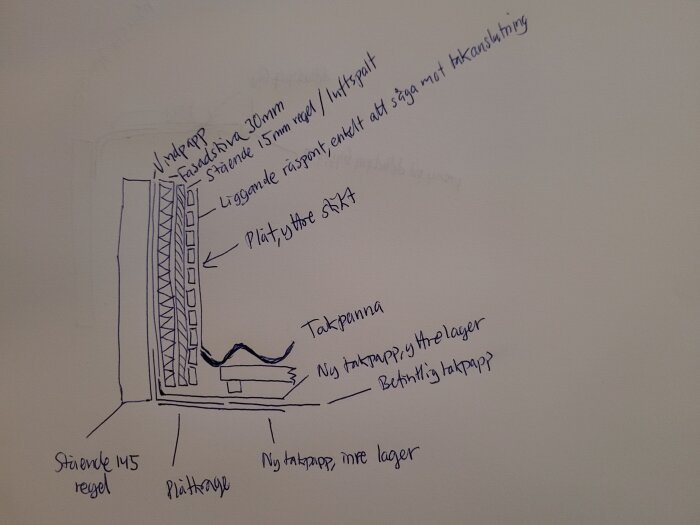 Vindpapp
Fasadskiva 30mm
Stående 15mm regel / luftspalt
Liggande råspont, enkelt att såga mot takanslutning
Plåt, yttre skikt
Takpanna
Ny takpapp, yttre lager
Befintlig takpapp
Stående 145
regel
Plåtkrage
Ny takpapp, inre lager